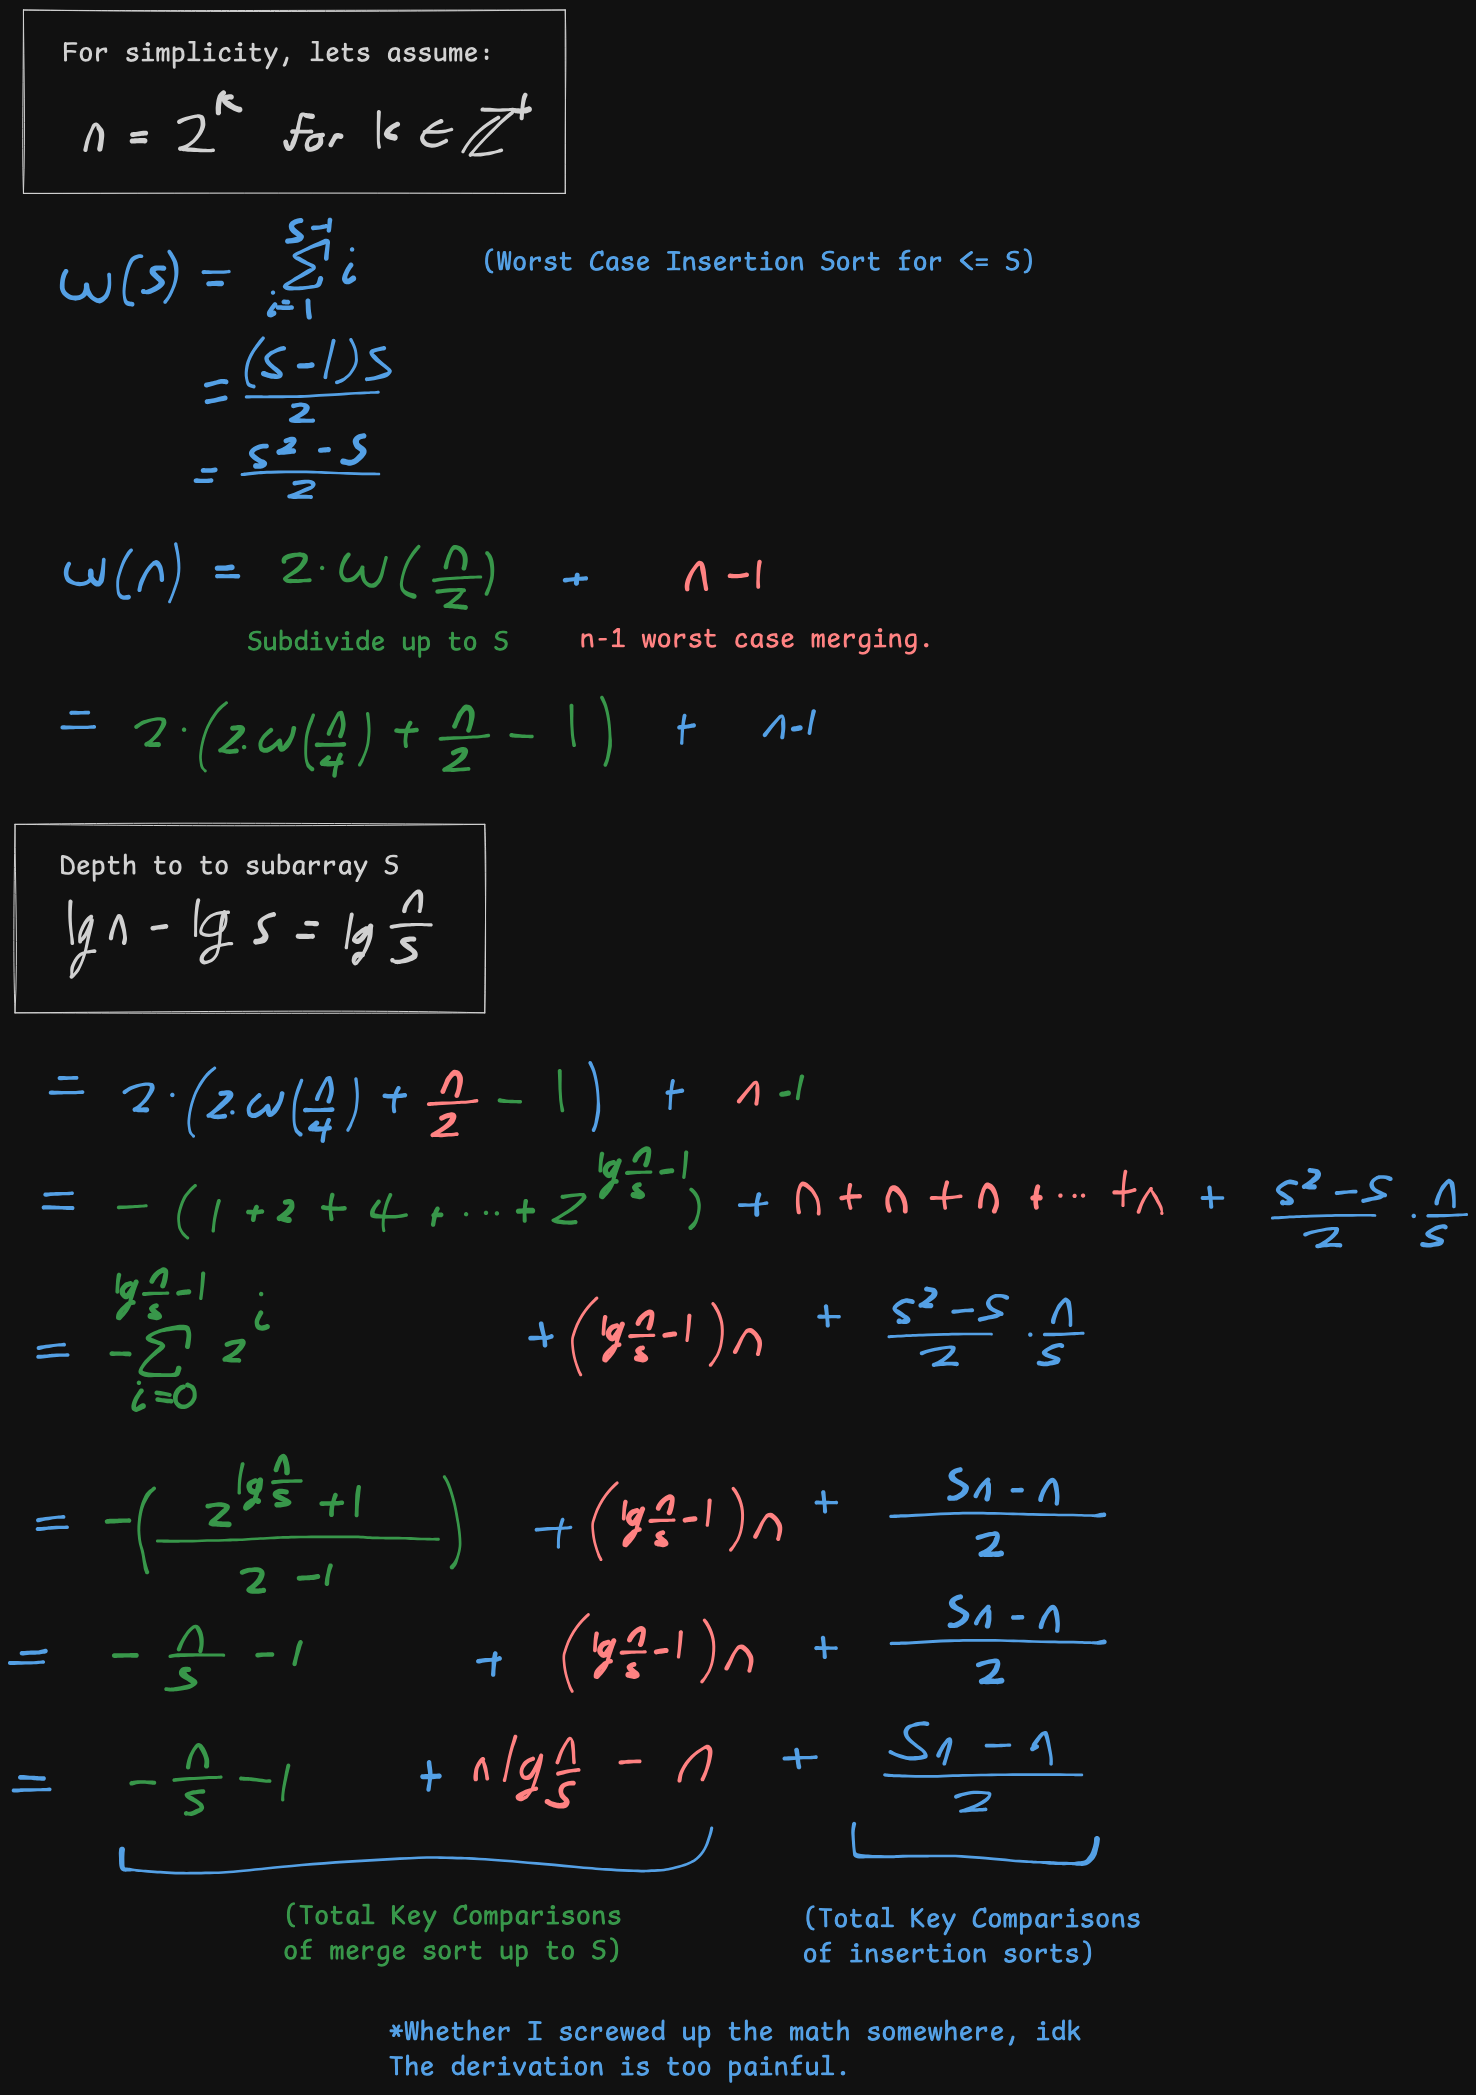 For simplicity, lets assume:
n = 2^k for k ∈ ℤ^+
W(S) = ∑_{i=1}^{S-1} i (Worst Case Insertion Sort for <= S)
= (S-1)S / 2
= S² - S / 2
W(n) = 2·W(n/2) + n-1
Subdivide up to S n-1 worst case merging.
= 2·(2·W(n/4) + n/2 - 1) + n-1
Depth to to subarray S
lg n - lg S = lg n/S
= 2·(2·W(n/4) + n/2 - 1) + n-1
= -(1 + 2 + 4 + ... + 2^{lg n/S - 1}) + n + n + n + ... + n + S² - S / 2 · n/S
= -∑_{i=0}^{lg n/S - 1} 2^i + (lg n/S - 1)n + S² - S / 2 · n/S
= -(2^{lg n/S} + 1 / 2 - 1) + (lg n/S - 1)n + Sn - n / 2
= - n/S - 1 + (lg n/S - 1)n + Sn - n / 2
= - n/S - 1 + n lg n/S - n + Sn - n / 2
(Total Key Comparisons
of merge sort up to S)
(Total Key Comparisons
of insertion sorts)
*Whether I screwed up the math somewhere, idk
The derivation is too painful.